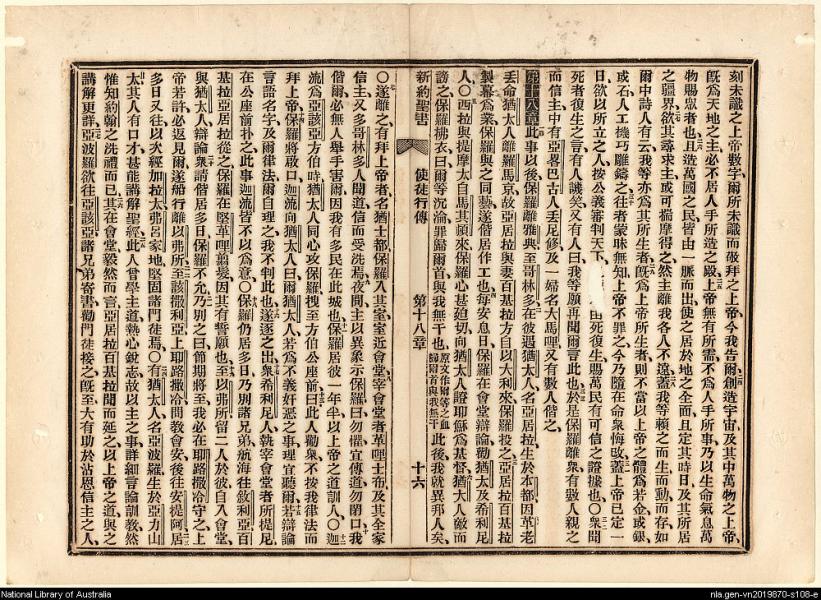 刻未識之上帝數字爾所未識而敬拜之上帝今我告爾創造宇宙及其中萬物之上帝、
旣爲天地之主必不居人手所造之殿上帝無有所需不爲人手所事乃以生命氣息萬
物賜眾者也且造萬國之民皆由一脈而出使之居於地之全面且定其時日及其所居
之疆界欲其尋求主或可揣摩得之然主離我各人不遠蓋我等賴之而生而動而存如
爾中詩人有云我等亦爲其所生者旣爲上帝所生者則不當以上帝之體爲若金或銀
或石人工機巧雕鑄之往者蒙昧無知上帝不罪之今乃隨在命衆悔改蓋上帝已定一
日欲以所立之人按公義審判天下、由死復生賜萬民有可信之證據也○衆聞
死者復生之言有人譏笑又有人曰我等願再聞爾言此也於是保羅離衆有數人親之
而信主中有亞畧巴古人丟尼修及一婦名大馬哩又有數人偕之、
第十八章此事以後保羅離雅典至哥林多在彼遇猶太人名亞居拉生於本都因革老
丟命猶太人離羅馬京故亞居拉與妻百基拉方自以大利來保羅投之亞居拉百基拉
製幕爲業保羅與之同藝遂偕居作工也每安息日保羅在會堂辯論勸猶太及希利尼
人、○西拉與提摩太自馬其頓來保羅心甚迫切向猶太人證耶穌爲基督猶太人敵而
謗之保羅拂衣曰爾等沉淪罪歸爾首與我無干也原文作爾等之血歸爾首與我無干此後我就異邦人矣、
新約聖書 使徒行傳 第十八章 十六
○遂離之有拜上帝者名猶士都保羅入其室室近會堂宰會堂者革哩士布及其全家
信主又多哥林多人聞道信而受洗焉夜間主以異象示保羅曰勿懼宜傳道勿閉口我
偕爾必無人舉手害爾因我有多民在此城也保羅居彼一年半以上帝之道訓人○迦
流爲亞該亞方伯時猶太人同心攻保羅拽至方伯公座前曰此人勸衆不按我律法而
拜上帝保羅將啟口迦流向猶太人曰爾猶太人若爲不義奸惡之事理宜聽爾若辯論
言語名字及爾律法爾自理之我不判此也遂逐之出衆希利尼人執宰會堂者所提尼
在公座前扑之此事迦流皆不以爲意○保羅仍居多日乃別諸兄弟航海往敘利亞百
基拉亞居拉從之保羅在堅革哩翦髮因其有誓願也至以弗所留二人於彼自入會堂、
與猶太人辯論衆請偕居多日保羅不允乃別之曰節期將至我必在耶路撒冷守之上
帝若許必返見爾遂船行離以弗所至該撒利亞上耶路撒冷問敎會安後往安提阿居
多日又往以次經加拉太弗呂家地堅固諸門徒焉○有猶太人名亞波羅生於亞力山
太其人有口才甚能講解聖經此人曾學主道熱心銳志故以主之事詳細言論訓敎然
惟知約翰之洗禮而已其在會堂毅然而言亞居拉百基拉聞而延之以上帝之道與之
講解更詳亞波羅欲往亞該亞諸兄弟寄書勸門徒接之旣至大有助於沾恩信主之人、
National Library of Australia
nla.gen-vn2019870-s108-e